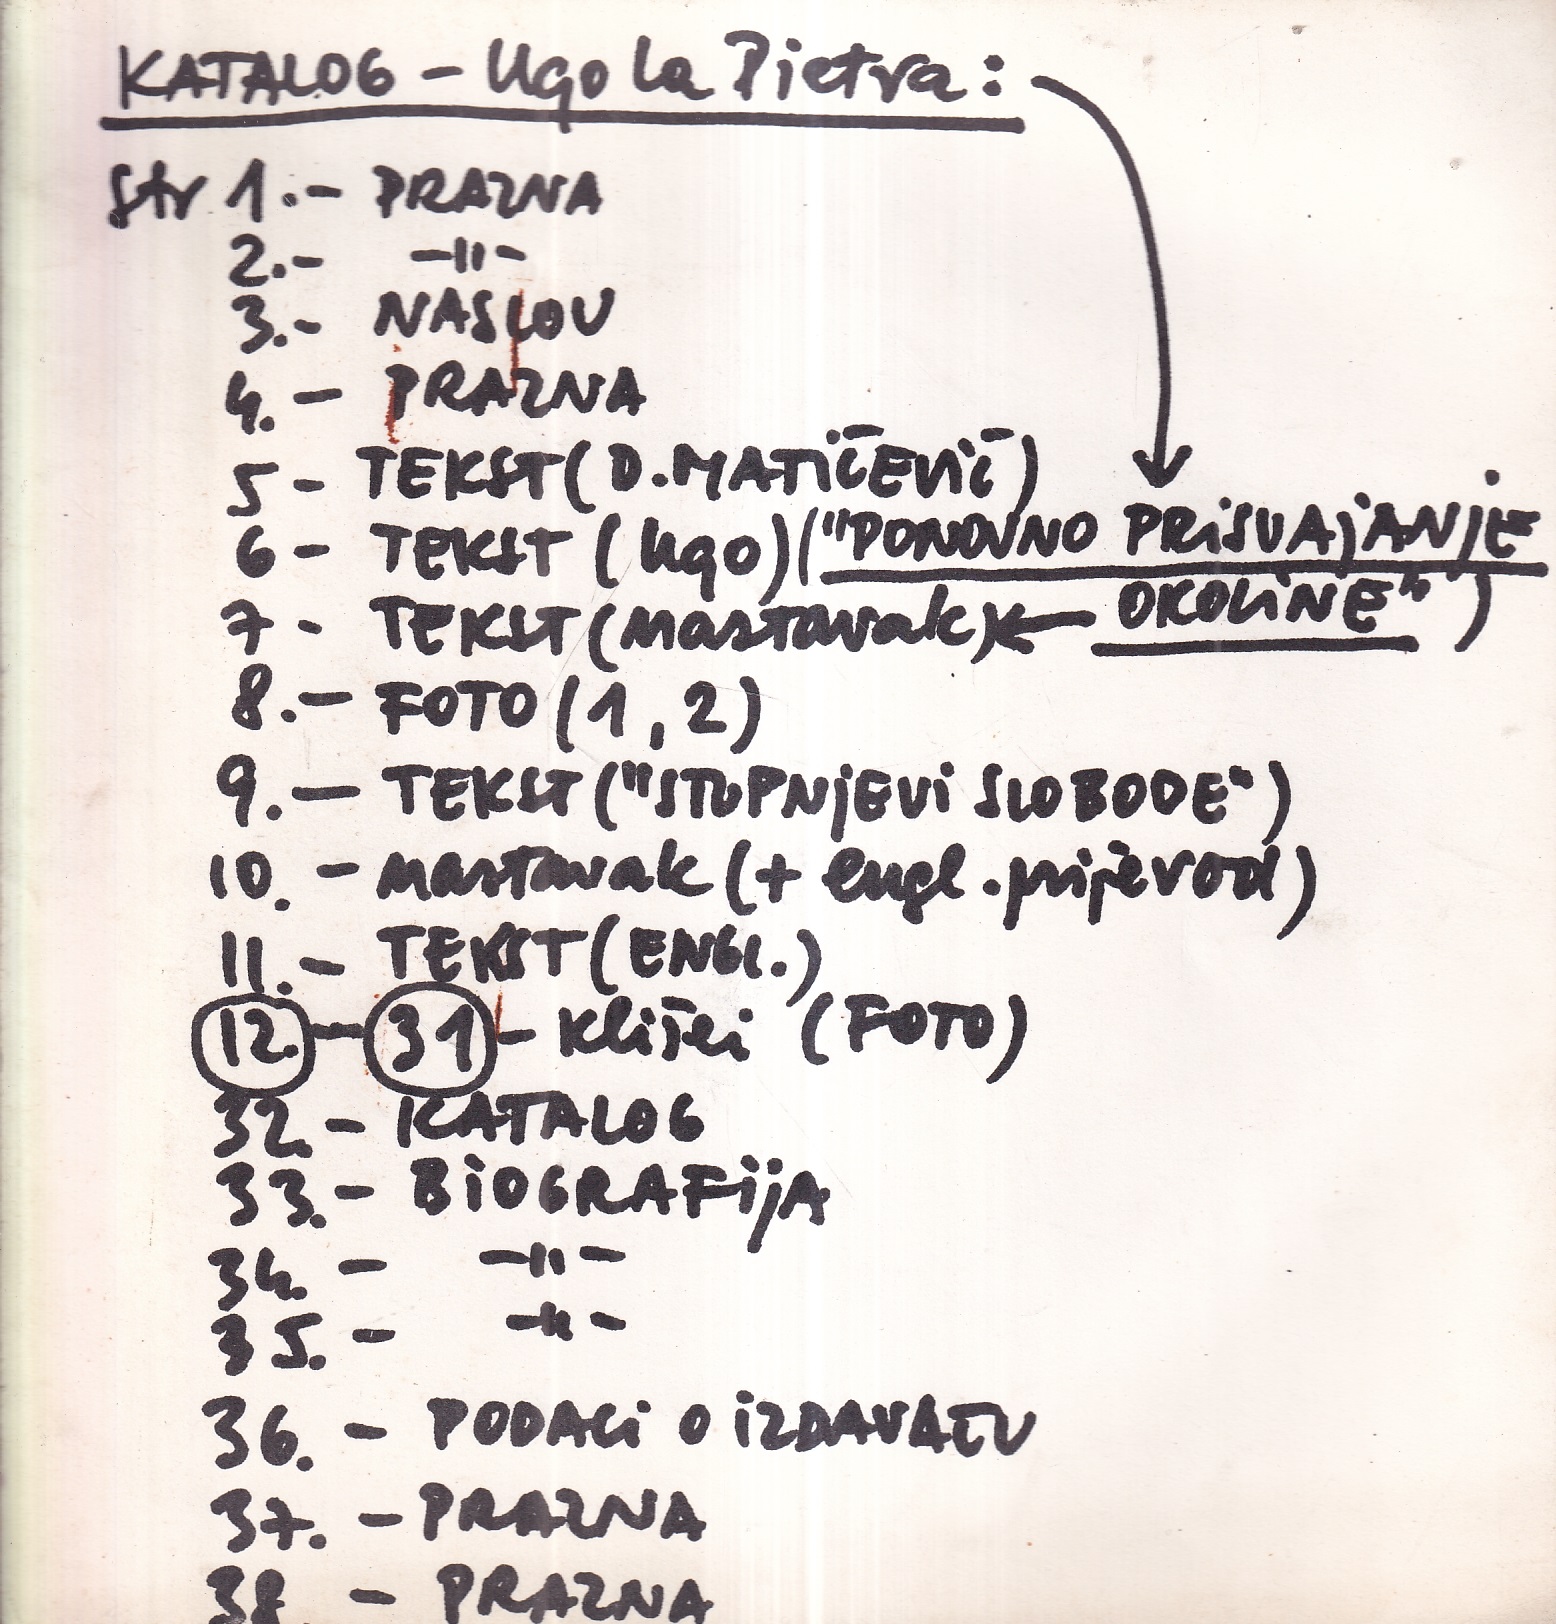 KATALOG - Ugo la Pietra:
str 1.- PRAZNA
2.- -11-
3.- NASLOV
4.- PRAZNA
5 - TEKST (D. MATIČEVIĆ)
6 - TEKST (Ugo) ("PONOVNO PRISVAJANJE
OKOLINE")
7 - TEKST (nastavak)
8.- FOTO (1, 2)
9.- TEKST ("STUPNJEVI SLOBODE")
10. - nastavak (+ engl. prijevod)
11.- TEKST (ENGL.)
12. - 31 - Klišei (FOTO)
32. - KATALOG
33. - BIOGRAFIJA
34. - -11-
35. - -11-
36. - PODACI O IZDAVAČU
37. - PRAZNA
38 - PRAZNA